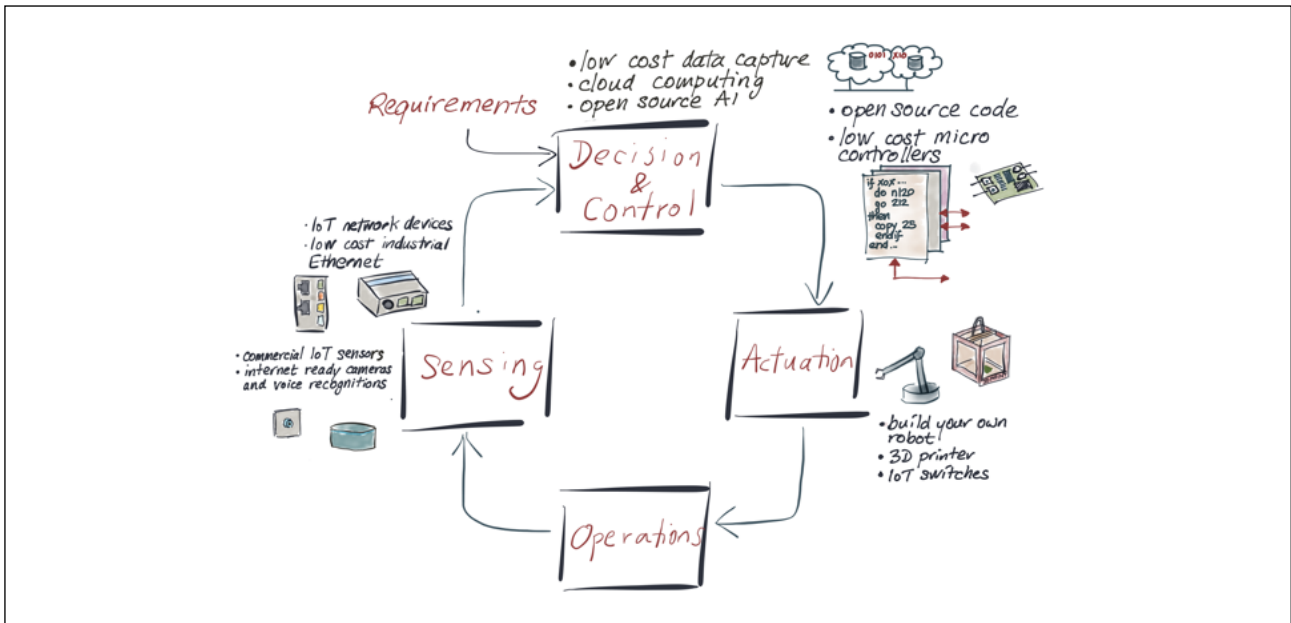 • low cost data capture
• cloud computing
• open source AI
Requirements
Decision
&
Control
0101 X10
• open source code
• low cost micro
controllers
if xox...
do n120
go 212
then
copy 25
endif
end...
• IoT network devices
• low cost industrial
Ethernet
• commercial IoT sensors
• internet ready cameras
and voice recognitions
Sensing
Actuation
• build your own
robot
• 3D printer
• IoT switches
Operations